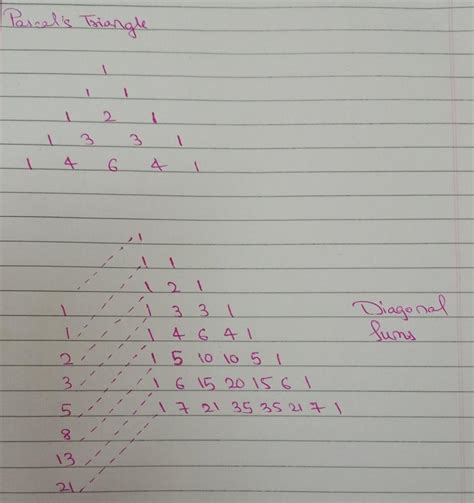 Pascal's Triangle
1
1 1
1 2 1
1 3 3 1
1 4 6 4 1
1
1 1
1 2 1
1 1 3 3 1
1 1 4 6 4 1
2 1 5 10 10 5 1
3 1 6 15 20 15 6 1
5 1 7 21 35 35 21 7 1
8
13
21
Diagonal
Sums